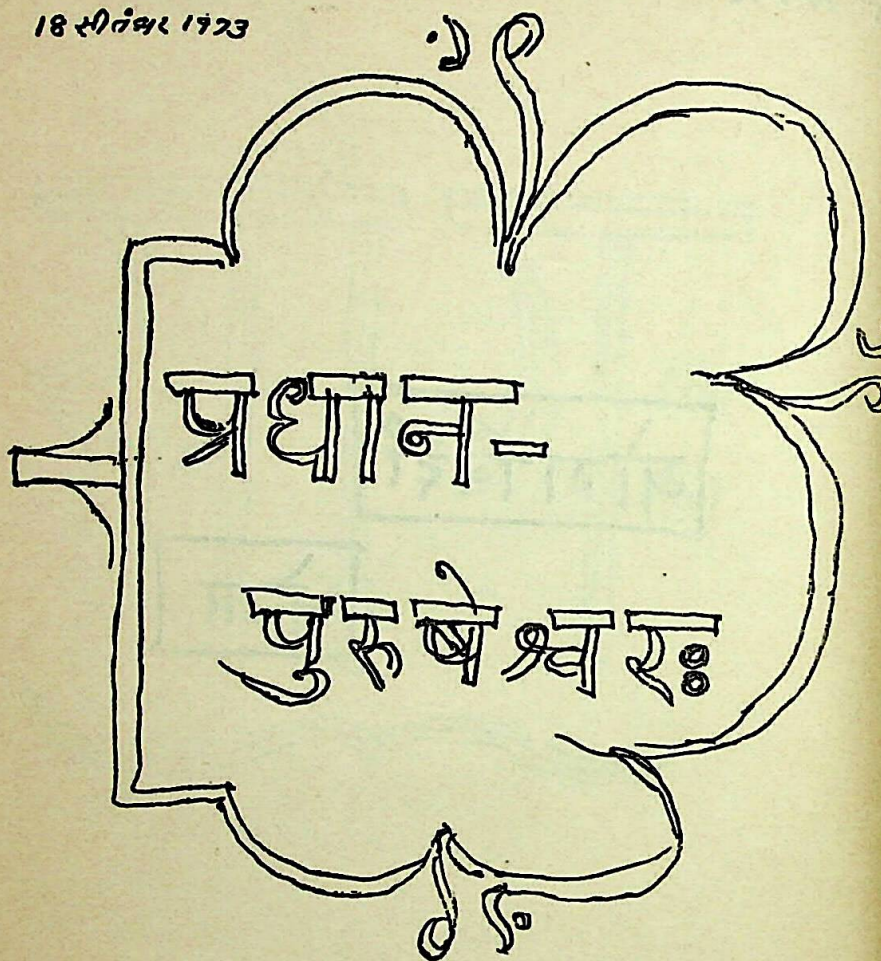 18 सीतंबर 1973
प्रधान-
पुरुषेश्वरः